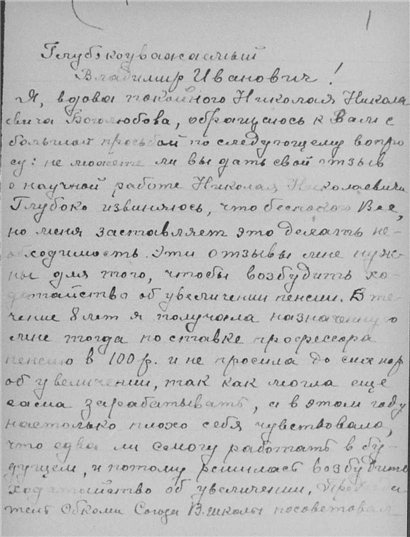 Глубокоуважаемый
Владимир Иванович!
Я, вдова покойного Николая Никола
евича Боголюбова, обращаюсь к Вам с
большой просьбой по следующему вопро
су: не можете ли вы дать свой отзыв
о научной работе Николая Николаевича
Глубоко извиняюсь, что беспокою Вас,
но меня заставляет это делать не-
обходимость. Эти отзывы мне нуж-
ны для того, чтобы возбудить хо-
датайство об увеличении пенсии. В те-
чение 8 лет я получала назначенную
мне тогда по ставке профессора
пенсию в 100 р. и не просила до сих пор
об увеличении, так как могла еще
сама зарабатывать, а в этом году
настолько плохо себя чувствовала,
что едва ли смогу работать в бу-
дущем, и потому решилась возбудить
ходатайство об увеличении.
тель Обкома Союза В. школы посоветовал